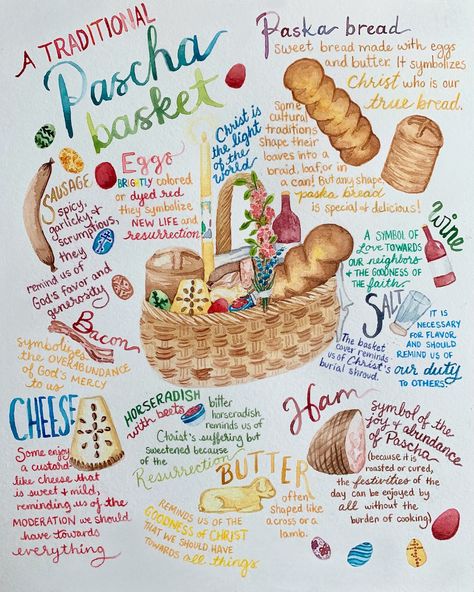 A TRADITIONAL
Pascha
basket
Paska bread
sweet bread made with eggs
and butter. It symbolizes
Christ who is our
true bread.
Some
cultural
traditions
shape their
loaves into a
braid, loaf, or in
a can! But any shape
paska bread
is special & delicious!
Christ is
the light
of the
world
Eggs
BRIGHTLY colored
or dyed red,
they symbolize
NEW LIFE and
resurrection
SAUSAGE
spicy,
garlicky, &
scrumptious,
they
remind us of
God's favor and
generosity
Wine
A SYMBOL OF
LOVE TOWARDS
OUR neighbors
& THE GOODNESS OF
THE faith.
SALT
IT IS
NECESSARY
FOR FLAVOR
AND SHOULD
REMIND US OF
our duty
TO OTHERS.
The basket
cover reminds
us of Christ's
burial shroud.
Bacon
Symbolizes
the OVERABUNDANCE
of God's MERCY
to us
CHEESE
Some enjoy
a custard-
like cheese that
is sweet & mild,
reminding us of the
MODERATION we should
have towards
everything
HORSERADISH
with beets
bitter
horseradish
reminds us of
Christ's suffering but
sweetened because of
the Resurrection
BUTTER
often
shaped like
a cross or a
lamb.
REMINDS US OF THE
GOODNESS OF CHRIST
THAT WE SHOULD HAVE
TOWARDS all things
Ham
Symbol of the
joy & abundance
of Pascha
(because it is
roasted or cured,
the festivities of the
day can be enjoyed by
all without the
burden of cooking)